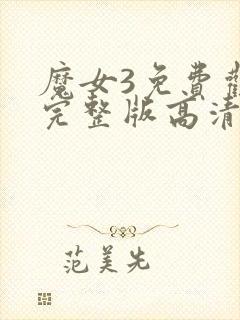 魔女3免費
完整版高清
范美先